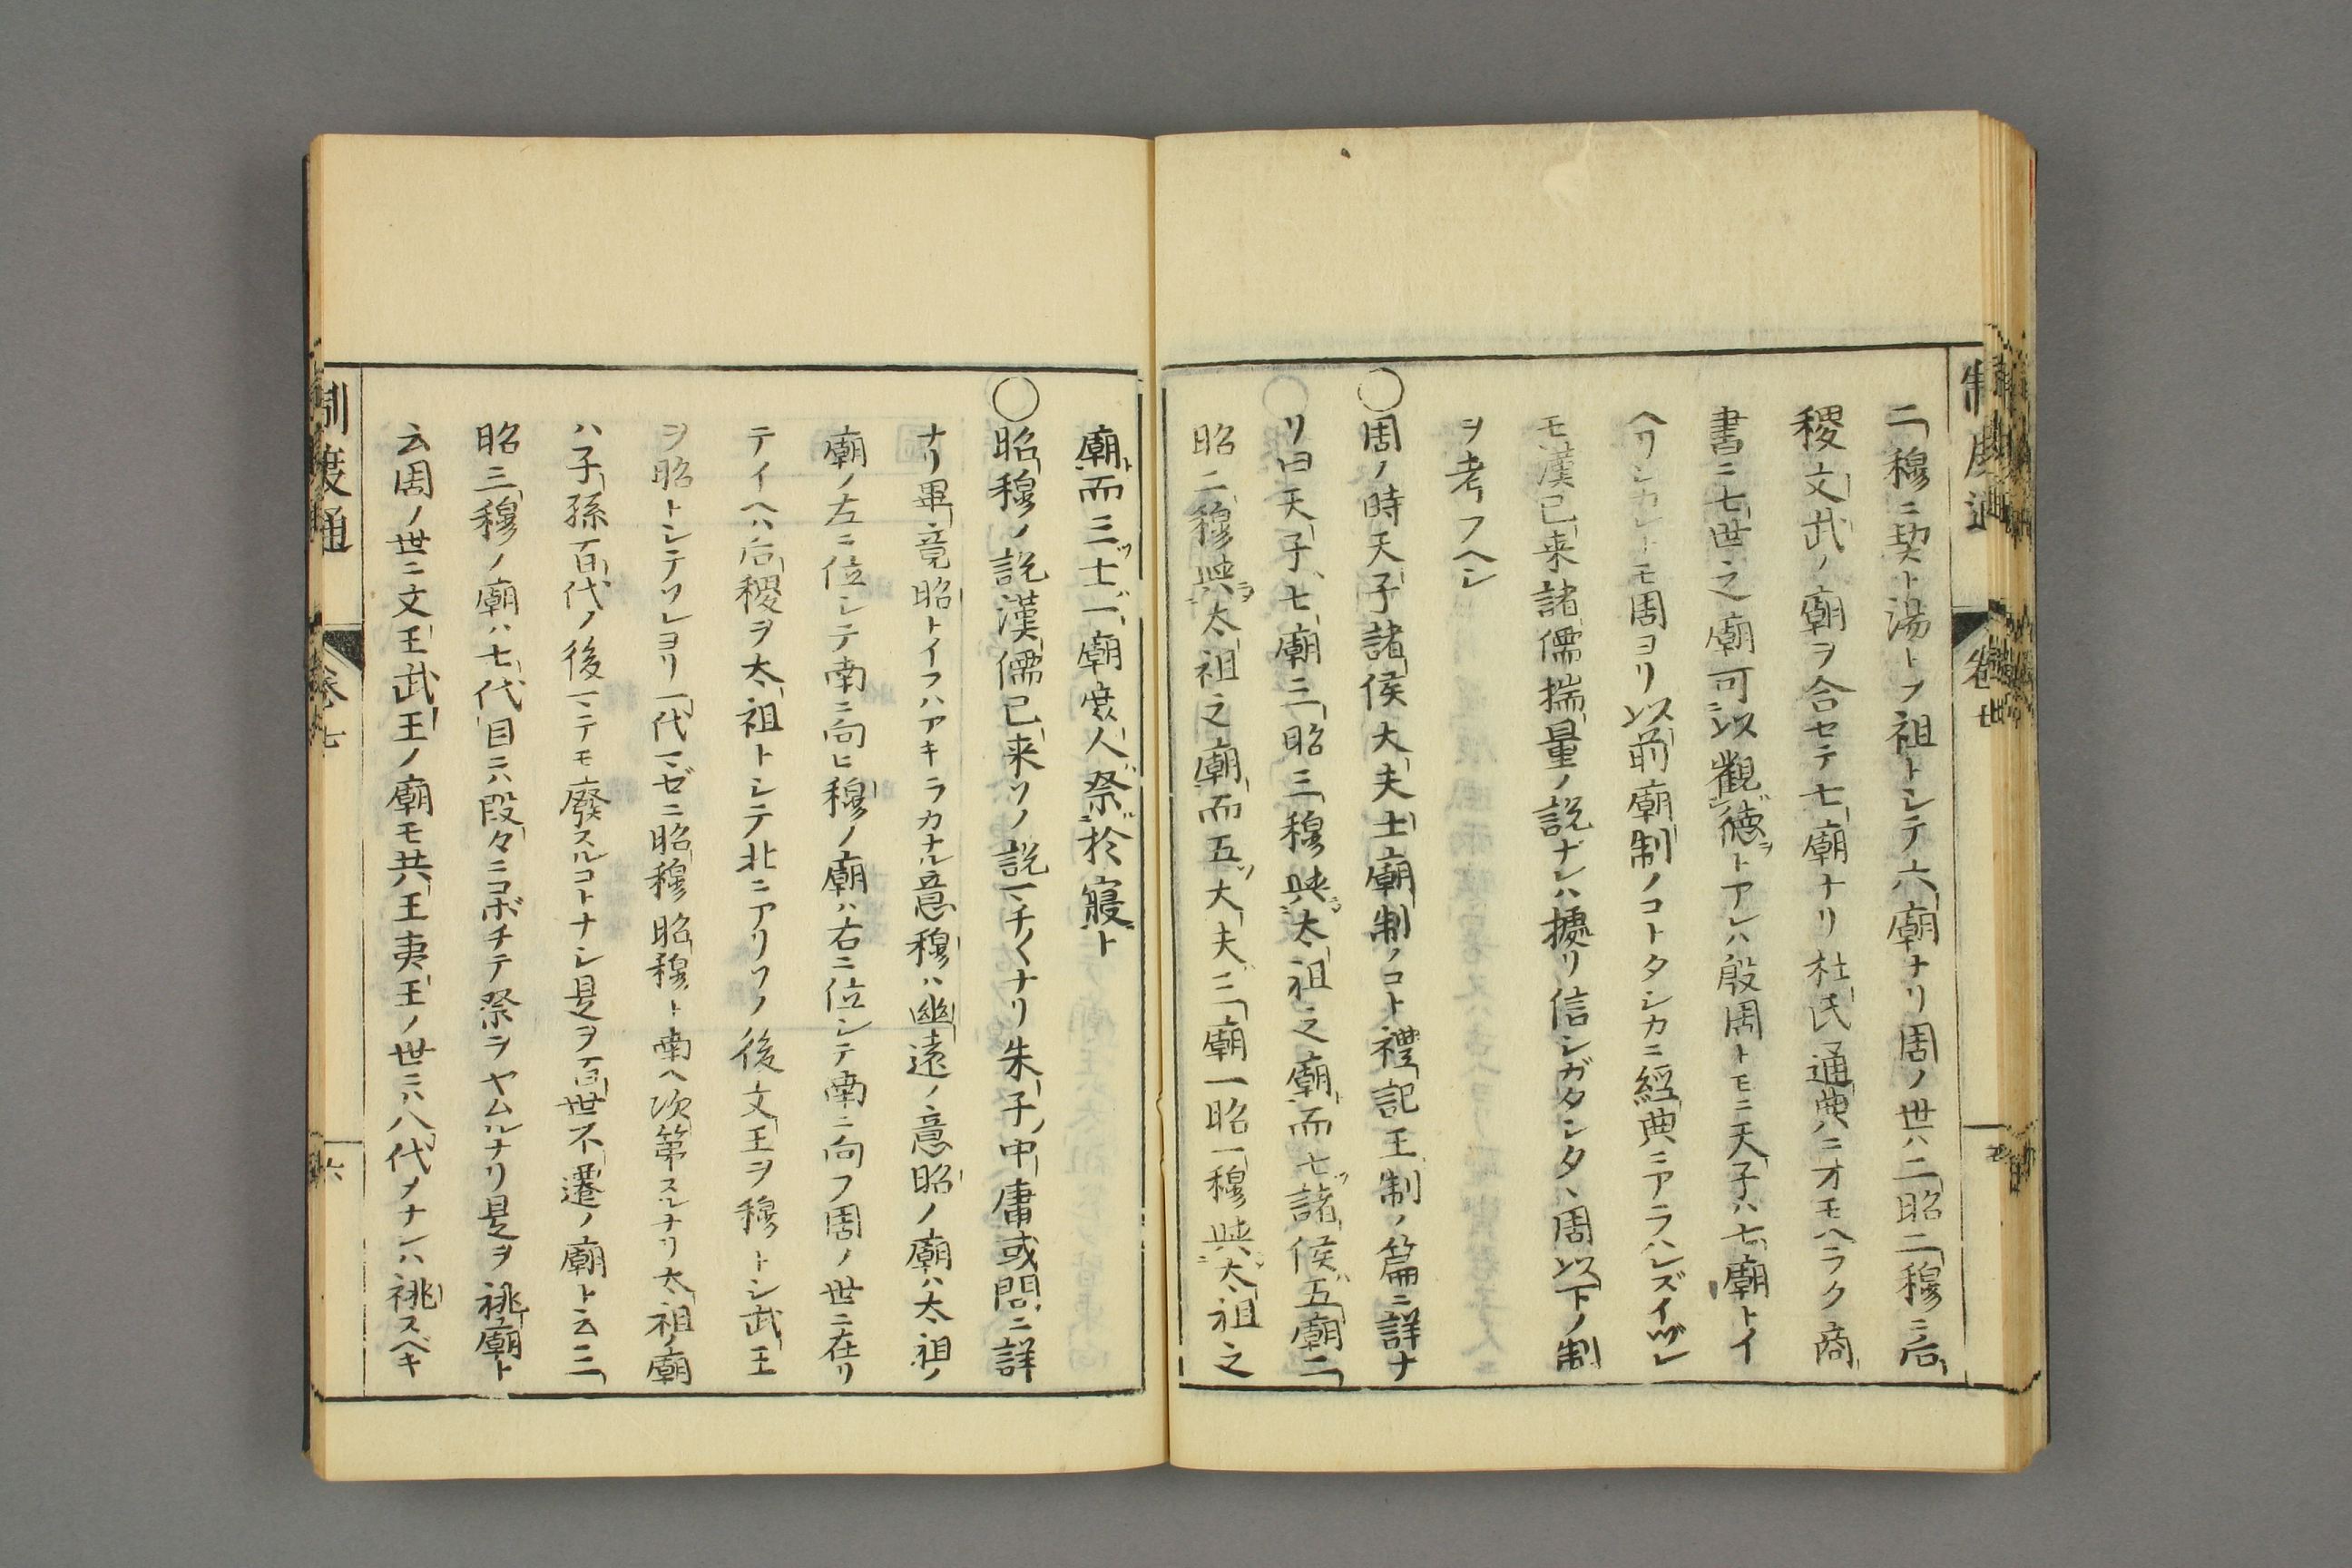 二穆ニ契ト湯トヲ祖トシテ六廟ナリ周ノ世ハ二昭二穆ニ后
稷文武ノ廟ヲ合セテ七廟ナリ杜氏通典ニオモヘラク商
書ニ七世之廟可以觀德トアレハ殷周トモニ天子ハ七廟トイ
ヘリシカレトモ周ヨリ以前廟制ノコトタシカニ經典ニアラハレズイヅレ
モ漢已来諸儒揣量ノ説ナレハ據リ信シガタシタヽ周以下ノ制
ヲ考フヘシ
○周ノ時天子諸侯大夫士廟制ノコト禮記王制ノ篇ニ詳ナ
リ曰天子七廟三昭三穆與太祖之廟而七諸侯五廟二
昭二穆與太祖之廟而五大夫三廟一昭一穆與太祖之
廟而三士一廟庶人祭於寢ト
○昭穆ノ説漢儒已来ソノ説マチ〱ナリ朱子中庸或問ニ詳
ナリ畢竟昭トイフハアキラカナル意穆ハ幽遠ノ意昭ノ廟ハ太祖ノ
廟ノ左ニ位シテ南ニ向ヒ穆ノ廟ハ右ニ位シテ南ニ向フ周ノ世ニ在リ
テイヘハ后稷ヲ太祖トシテ北ニアリソノ後文王ヲ穆トシ武王
ヲ昭トシテソレヨリ一代マゼニ昭穆昭穆ト南ヘ次第スルナリ太祖ノ廟
ハ子孫百代ノ後マテモ廢スルコトナシ是ヲ百世不遷ノ廟ト云三
昭三穆ノ廟ハ七代目ニハ段々ニコボチテ祭ヲヤムルナリ是ヲ祧廟ト
云周ノ世ニ文王武王ノ廟モ共王夷王ノ世ニハ八代メナレハ祧スベキ
制度通
卷七
六